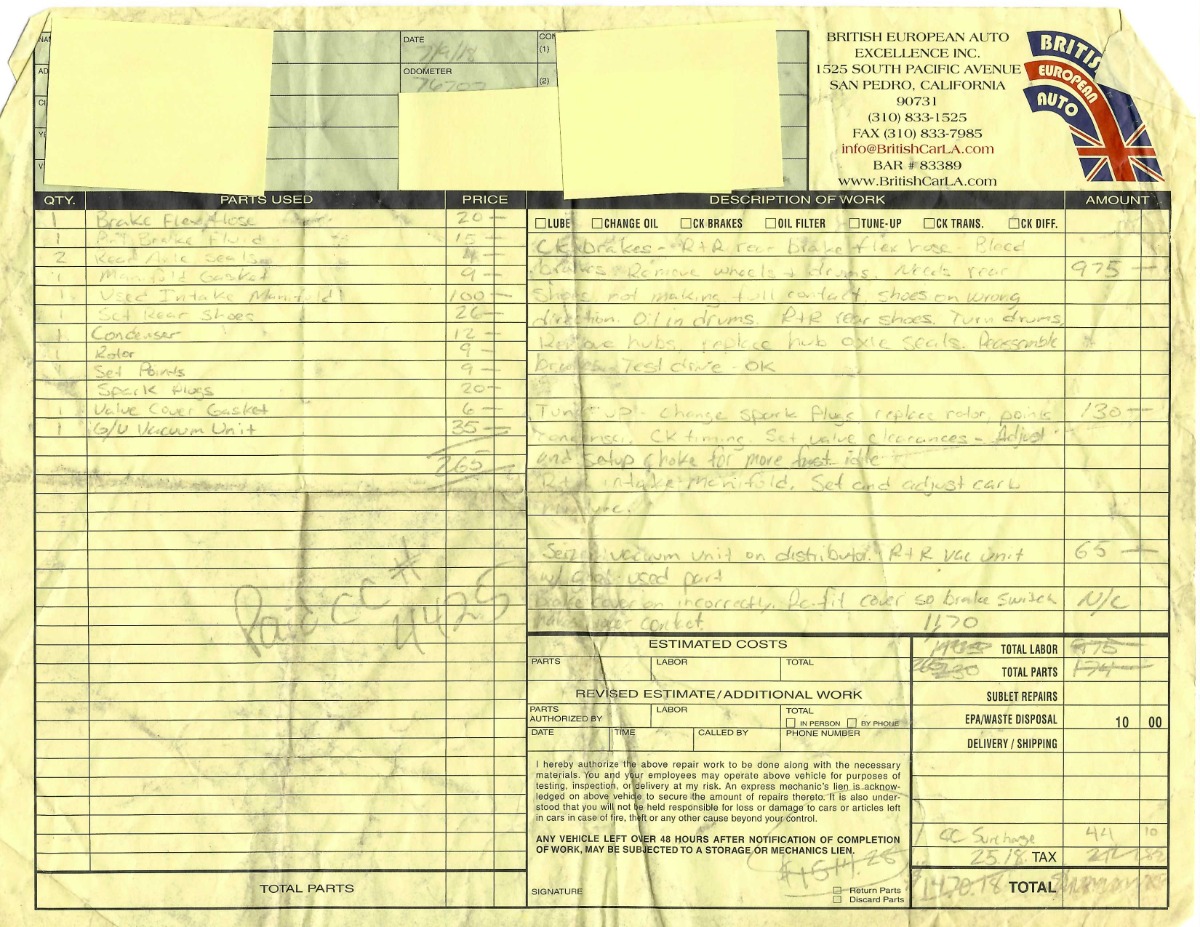 DATE
7/9/18
ODOMETER
(1)
(2)
BRITISH EUROPEAN AUTO
EXCELLENCE INC.
1525 SOUTH PACIFIC AVENUE
SAN PEDRO, CALIFORNIA
90731
(310) 833-1525
FAX (310) 833-7985
info@BritishCarLA.com
BAR # 83389
www.BritishCarLA.com
EUROPEAN
AUTO
QTY. PARTS USED PRICE
1 Brake Flex Hose 20 —
1 Brake Fluid 15 —
2 Rear Axle Seals
1 Manifold Gasket 9 —
1 Used Intake Manifold 100 —
1 Set Rear Shoes 26 —
1 Condenser 12 —
1 Rotor 9 —
1 Set Points 9 —
Spark Plugs 20 —
1 Valve Cover Gasket 6 —
1 G/U Vacuum Unit 35 —
265
Paid CC #
4425
TOTAL PARTS
DESCRIPTION OF WORK AMOUNT
LUBE CHANGE OIL CK BRAKES OIL FILTER TUNE-UP CK TRANS. CK DIFF.
CK brakes - R+R rear brake flex hose - Bleed
brakes. Remove wheels + drums. Needs rear 975 —
Shoes, not making full contact, shoes on wrong
direction. Oil in drums. R+R rear shoes. Turn drums,
Remove hubs, replace hub axle seals. Reassemble
brakes. Test drive - OK
Tune-up - Change spark plugs, replace rotor, points 130 —
condenser. CK timing. Set valve clearances - Adjust
and setup choke for more fast idle
R+R intake manifold. Set and adjust carb
mixture.
Seized vacuum unit on distributor. R+R vac unit 65 —
w/ good used part
Brake cover on incorrectly. Re-fit cover so brake switch N/C
contact.
1170
ESTIMATED COSTS
PARTS LABOR TOTAL
REVISED ESTIMATE/ADDITIONAL WORK
PARTS LABOR TOTAL
AUTHORIZED BY IN PERSON BY PHONE
DATE TIME CALLED BY PHONE NUMBER
I hereby authorize the above repair work to be done along with the necessary
materials. You and your employees may operate above vehicle for purposes of
testing, inspection, or delivery at my risk. An express mechanic's lien is acknow-
ledged on above vehicle to secure the amount of repairs thereto. It is also under-
stood that you will not be held responsible for loss or damage to cars or articles left
in cars in case of fire, theft or any other cause beyond your control.
ANY VEHICLE LEFT OVER 48 HOURS AFTER NOTIFICATION OF COMPLETION
OF WORK, MAY BE SUBJECTED TO A STORAGE OR MECHANICS LIEN.
$1514.28
SIGNATURE
Return Parts
Discard Parts
TOTAL LABOR 975
TOTAL PARTS 174
SUBLET REPAIRS
EPA/WASTE DISPOSAL 10 00
DELIVERY / SHIPPING
CC Surcharge 44 10
25.18 TAX
1470.18 TOTAL